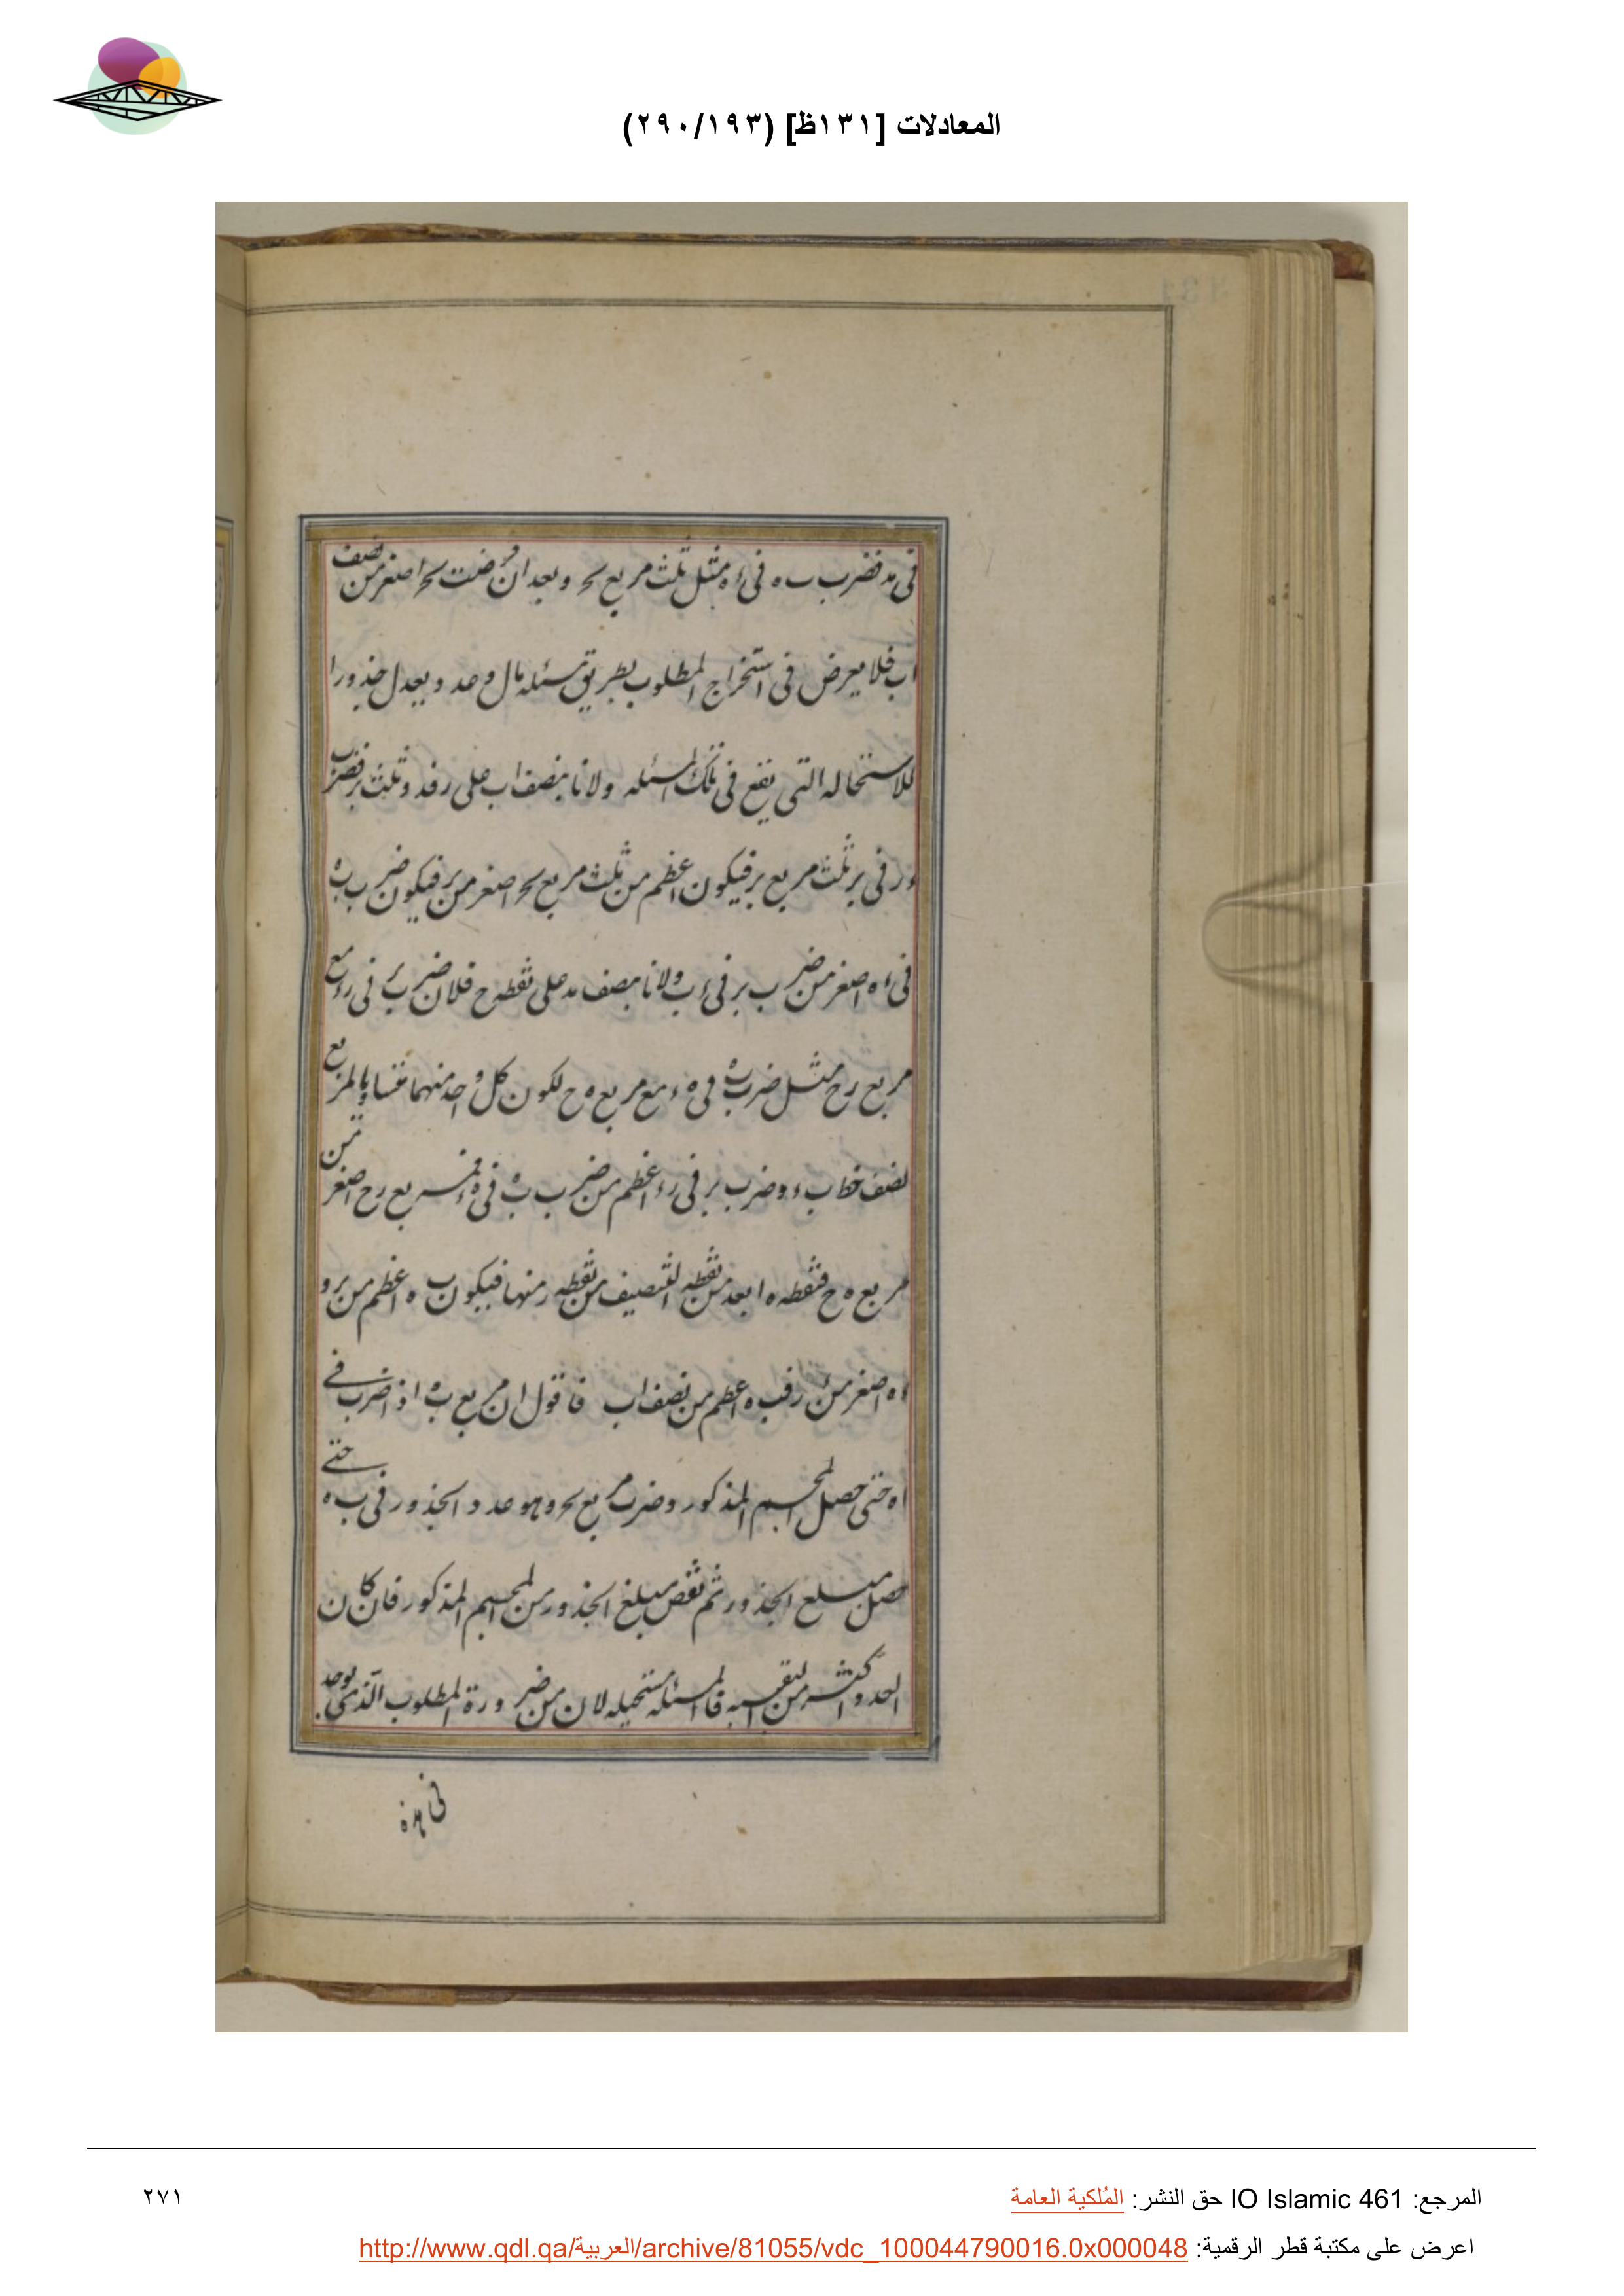 المعادلات [١٣١ظ] (٢٩٠/١٩٣)
فى مد فضرب ب ه فى ء ه مثل ثلث مربع ىح وبعد ان فرضت ىح اصغر من نصف
اب فلا يعرض فى استخراج المطلوب بطريق مسئله مال وعدد يعدل جذورا
للاستحاله التى يقع فى تلك المسئله ولانا ننصف اب على ر فد و ثلث بر فضرب
ء ر فى بر ثلث مربع بر فيكون اعظم من ثلث مربع ىح اصغر من بر فيكون ضرب ب ه
فى ء ه اصغر من ضرب بر فى ء ب ولانا ننصف مد على نقطه ح فلان ضرب بر فى ر ء مع
مربع رح مثل ضرب ب ه فى ه ء مع مربع ه ح لكون كل واحد منهما متساويا لمربع
نصف خط ب ء وضرب بر فى ر ء اعظم من ضرب ب ه فى ه ء فمربع رح اصغر من
مربع ه ح فنقطه ه ابعد من نقطه التنصيف من نقطه ر منها فيكون ب ه اعظم من بر و
ء ه اصغر من ء ر فب ه اعظم من نصف اب فاقول ان مربع ب ه اذا ضرب فى
اه حتى حصل المجسم المذكور وضرب مربع ىح وهو عدد الجذور فى ب ه حتى
حصل مبلغ الجذور ثم نقص مبلغ الجذور من المجسم المذكور فان كان
العدد اكثر من البقيه فالمسئله مستحيله لان من ضرورة المطلوب الذى يوجد
فى هذه
المرجع: IO Islamic 461 حق النشر: المُلكية العامة
٢٧١
اعرض على مكتبة قطر الرقمية: http://www.qdl.qa/العربية/archive/81055/vdc_100044790016.0x000048